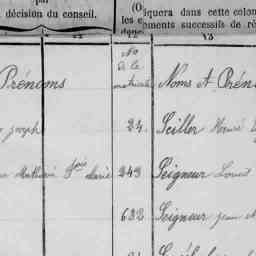 par
décision du conseil.
(O
iquera dans cette colon
les c
ements successifs de ré
13
No
de le
matricule
Prénoms
Noms et Préno
Joseph
24. Seiller Henri
Mathurin José Marie 249 Seigneur Louis
632 Seigneur Jean M